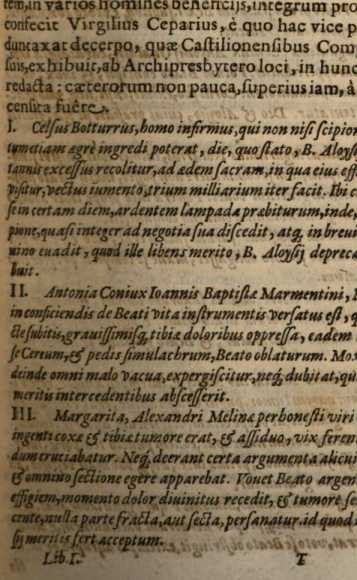 tem, in varios homines beneficijs, integrum pro
confecit Virgilius Ceparius, è quo hac vice p
duntaxat decerpo, quæ Castilionensibus Com
suis, exhibuit, ab Archipresbytero loci, in hunc
redacta: cæterorum non pauca, superius iam, à
censita fuêre.
I. Celsus Botturrus, homo infirmus, qui non nisi scipion
tumetiam ægrè ingredi poterat, die, quo stato, B. Aloysi
tannis excessus recolitur, ad ædem sacram, in qua eius eff
visitur, vectus iumento, trium milliarium iter facit. Ibi c
se in certam diem, ardentem lampada præbiturum, inde,
pione, quasi integer ad negotia sua discedit, atq, in brevi
uino euadit, quod ille libens merito, B. Aloysij depreca
buit.
II. Antonia Coniux Ioannis Baptistæ Marmentini,
in conficiendis de Beati vita instrumentis versatus est, q
cte subitis, grauissimisq, tibiæ doloribus oppressa, eadem
se Cereum, & pedis simulachrum, Beato oblaturum. Mox
deinde omni malo vacua, expergiscitur, neq, dubitat, qu
meritis intercedentibus abscesserit.
III. Margarita, Alexandri Melinæ perhonesti viri
ingenti coxæ & tibiæ tumore erat, & assiduo, vix feren
dum cruciabatur. Neq, deerant certa argumenta alicui
& omnino sectione egere apparebat. Vouet Beato argen
effigiem, momento dolor diuinitus recedit, & tumore se
cente, nulla parte fracta, aut secta, persanatur. id quod
sij meritis fert acceptum.
Lib. I. T